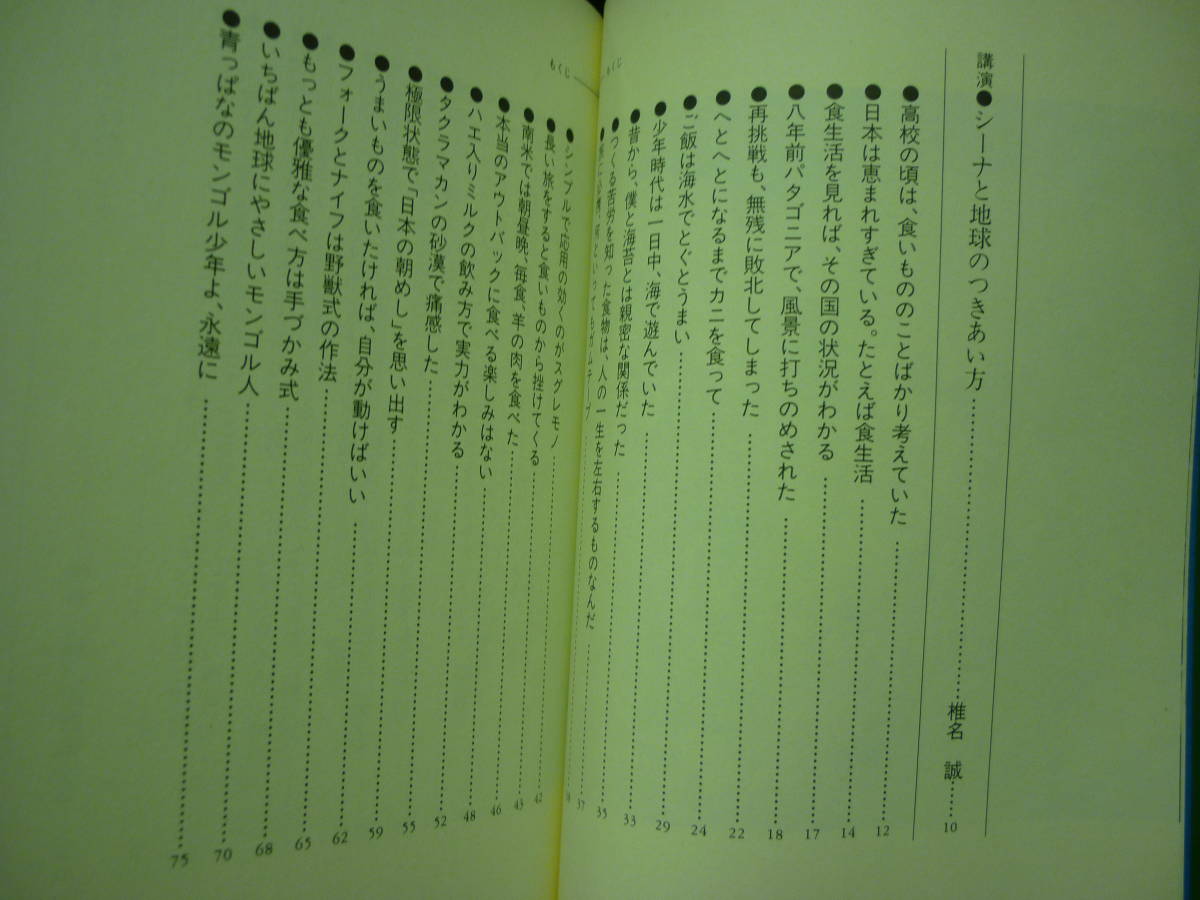 もくじ
講演●シーナと地球のつきあい方……椎名 誠……10
●高校の頃は、食いもののことばかり考えていた……12
●日本は恵まれすぎている。たとえば食生活……14
●食生活を見れば、その国の状況がわかる……17
●八年前パタゴニアで、風景に打ちのめされた……18
●再挑戦も、無残に敗北してしまった……22
●へとへとになるまでカニを食って……24
●ご飯は海水でとぐとうまい……29
●少年時代は一日中、海で遊んでいた……33
●昔から、僕と海苔とは親密な関係だった……35
●つくる苦労を知った食物は、人の一生を左右するものなんだ……37
といってもガムテープ
もくじ
●シンプルで応用の効くのがスグレモノ
●長い旅をすると食いものから挫けてくる……42
●南米では朝昼晩、毎食、羊の肉を食べた……43
●本当のアウトバックに食べる楽しみはない……46
●ハエ入りミルクの飲み方で実力がわかる……48
●タクラマカンの砂漠で痛感した……52
●極限状態で「日本の朝めし」を思い出す……55
●うまいものを食いたければ、自分が動けばいい……59
●フォークとナイフは野獣式の作法……62
●もっとも優雅な食べ方は手づかみ式……65
●いちばん地球にやさしいモンゴル人……68
●青っぱなのモンゴル少年よ、永遠に……70
75